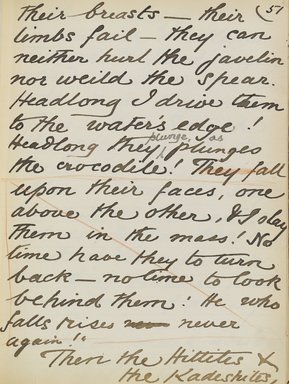 their breasts — their (57
limbs fail — they can
neither hurl the javelin
nor weild the spear.
Headlong I drive them
to the water's edge!
Headlong they plunge, as plunges
the crocodile! They fall
upon their faces, one
above the other, & I slay
them in the mass! No
time have they to turn
back — no time to look
behind them! He who
falls rises never
again!"
Then the Hittites &
the Kadeshites,